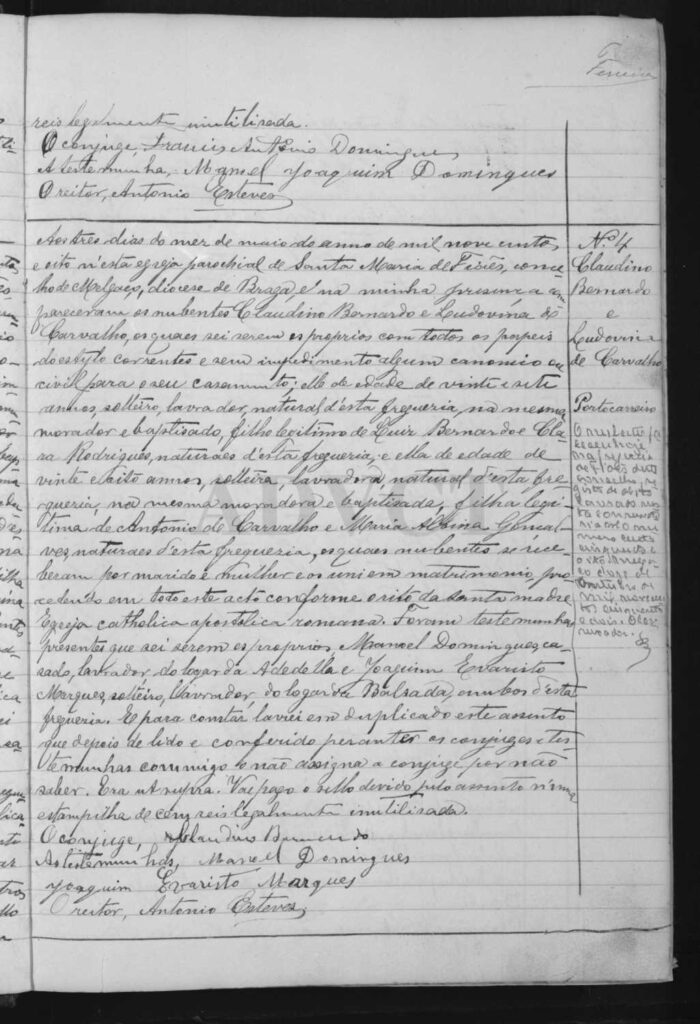 6
Ferreira
reis legalmente inutilisada.
O conjuge, Francisco Antonio Domingues
A testemunha, Manoel Joaquim Domingues
O reitor, Antonio Esteves
Aos tres dias do mez de maio do anno de mil nove centos
e oito n'esta egreja parochial de Santa Maria de Fiães, conce
lho de Melgaço, diocese de Braga, e na minha presença com
pareceram os nubentes Claudino Bernardo e Ludovina de
Carvalho, os quaes sei serem os proprios com todos os papeis
do estylo correntes e sem impedimento algum canonico ou
civil para o seu casamento; elle de edade de vinte e sete
annos, solteiro, lavrador, natural d'esta freguezia, na mesma
morador e baptisado, filho legitimo de Luiz Bernardo e Cla
ra Rodrigues, naturaes d'esta freguezia, e ella de edade de
vinte e oito annos, solteira, lavradora, natural d'esta fre
guezia, na mesma moradora e baptisada, filha legi
tima de Antonio de Carvalho e Maria Albina Gonsal
ves, naturaes d'esta freguezia, os quaes nubentes se rece
beram por marido e mulher e os uni em matrimonio, pro
cedendo em todo este acto conforme o rito da santa madre
Egreja catholica apostolica romana. Foram testemunhas
presentes que sei serem os proprios, Manoel Domingues, ca
sado, lavrador do logar da Adedella e Joaquim Evaristo
Marques, solteiro, lavrador do logar da Balsada, ambos d'esta
freguezia. E para constar lavrei em duplicado este assento
que depois de lido e conferido perante os conjuges e tes
temunhas commigo e não assigna a conjuge por não
saber. Era ut supra. Vae pago o sello devido pelo assento n'uma
estampilha de cem reis legalmente inutilisada.
O conjuge, Claudino Bernardo
As testemunhas, Manoel Domingues
Joaquim Evaristo Marques
O reitor, Antonio Esteves
Nº 4
Claudino
Bernardo
e
Ludovina
de Carvalho
Portocarreiro
O nubente fa
leceu hoje
na freguesia
de Fiães deste
concelho, re
gisto de obito
lavrado nes
ta conservató
ria sob o nu
mero cento
cinquenta e
oito. Melga
ço doze de
de mil novecen
tos cinquenta
e seis. O Con
servador: